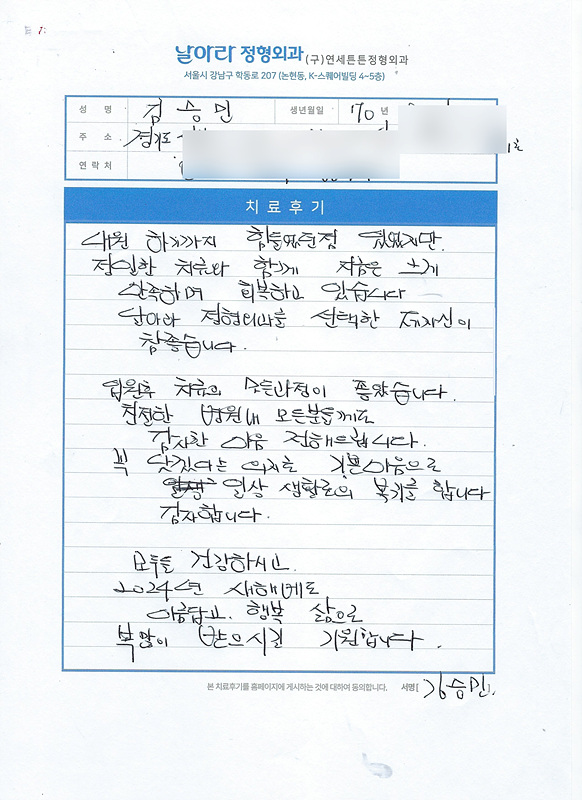 날아라 정형외과 (구)연세튼튼정형외과
서울시 강남구 학동로 207 (논현동, K-스퀘어빌딩 4~5층)
성 명 김승민 생년월일 70 년
주 소 경기도
연락처
치료후기
내원 하기까지 힘들었던점 있었지만
정밀한 치료와 함께 지금은 크게
만족하며 회복하고 있습니다
날아라 정형외과를 선택한 제자신이
참좋습니다.
입원후 치료의 모든과정이 좋았습니다.
친절한 병원내 모든분들께도
감사한 마음 전해드립니다.
꼭 낫겠다는 의지로 기쁜마음으로
일상 생활로의 복귀를 합니다
감사합니다.
모두들 건강하시고.
2024년 새해에도
아름답고. 행복 삶으로
복많이 받으시길 기원합니다.
본 치료후기를 홈페이지에 게시하는 것에 대하여 동의합니다. 서명[ 김승민.